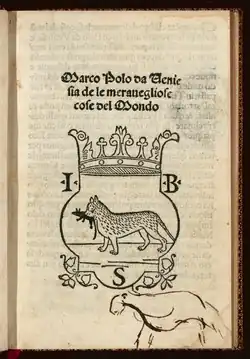 Marco Polo da Venie
sia de le merauegliose
cose del Mondo
I B
S